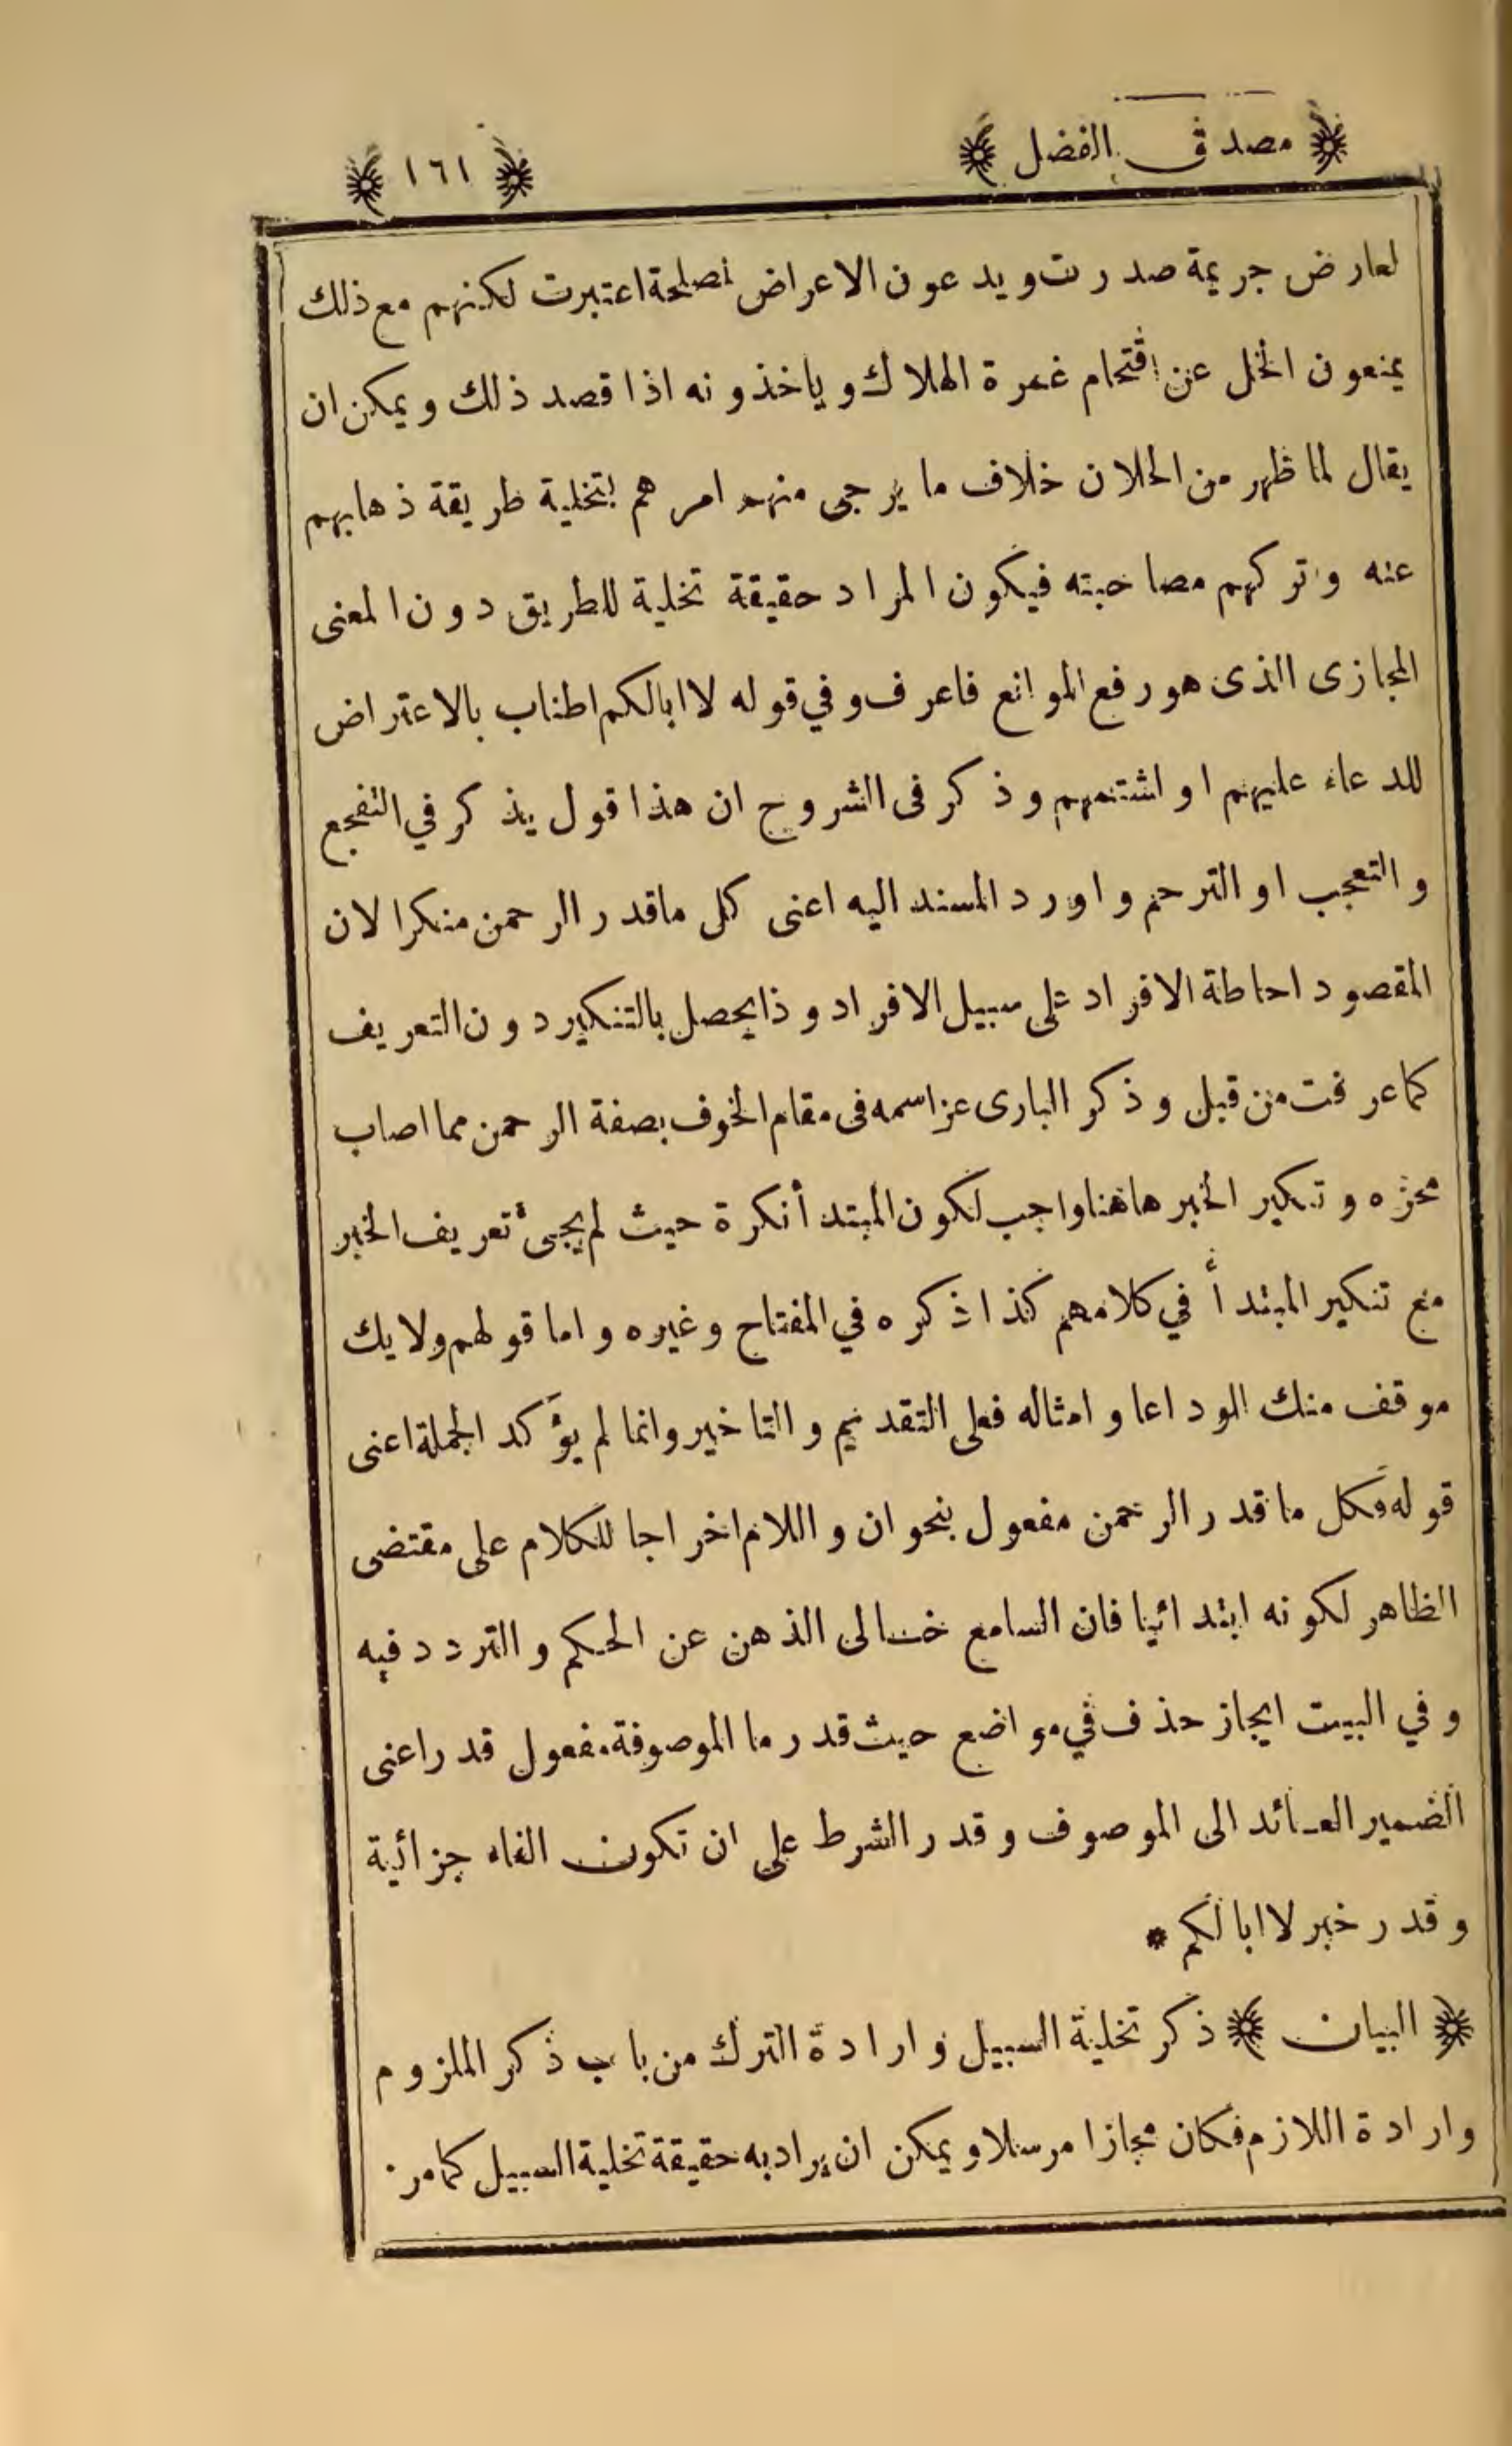 مصدق الفضل
١٦١
لعارض جريمة صدرت ويدعون الاعراض لمصلحة اعتبرت لكنهم مع ذلك
يمنعون الخل عن اقتحام غمرة الهلاك وياخذونه اذا قصد ذلك ويمكن ان
يقال لما ظهر من الخلان خلاف ما يرجى منهم امرهم بتخلية طريقة ذهابهم
عنه وتركهم مصاحبته فيكون المراد حقيقة تخلية للطريق دون المعنى
المجازى الذى هو رفع الموانع فاعرف وفي قوله لا ابالكم اطناب بالاعتراض
للدعاء عليهم او لشتمهم وذكر فى الشروح ان هذا قول يذكر في التفجع
والتعجب او الترحم واورد المسند اليه اعنى كل ماقدر الرحمن منكرا لان
المقصود احاطة الافراد على سبيل الافراد وذا يحصل بالتنكير دون التعريف
كما عرفت من قبل وذكر البارى عز اسمه فى مقام الخوف بصفة الرحمن مما اصاب
محزه وتنكير الخبر هاهنا واجب لكون المبتدأ نكرة حيث لم يجئ تعريف الخبر
مع تنكير المبتدأ في كلامهم كذا ذكره في المفتاح وغيره واما قولهم ولا يك
موقف منك الوداعا وامثاله فعلى التقديم والتاخير وانما لم يؤكد الجملة اعنى
قوله فكل ما قدر الرحمن مفعول بنحو ان واللام اخراجا للكلام على مقتضى
الظاهر لكونه ابتدائيا فان السامع خالى الذهن عن الحكم والتردد فيه
وفي البيت ايجاز حذف في مواضع حيث قدر ما الموصوفة مفعول قدر اعنى
الضمير العائد الى الموصوف وقدر الشرط على ان تكون الفاء جزائية
وقدر خبر لا ابا لكم *
البيان ذكر تخلية السبيل وارادة الترك من باب ذكر الملزوم
وارادة اللازم فكان مجازا مرسلا ويمكن ان يراد به حقيقة تخلية السبيل كمامر